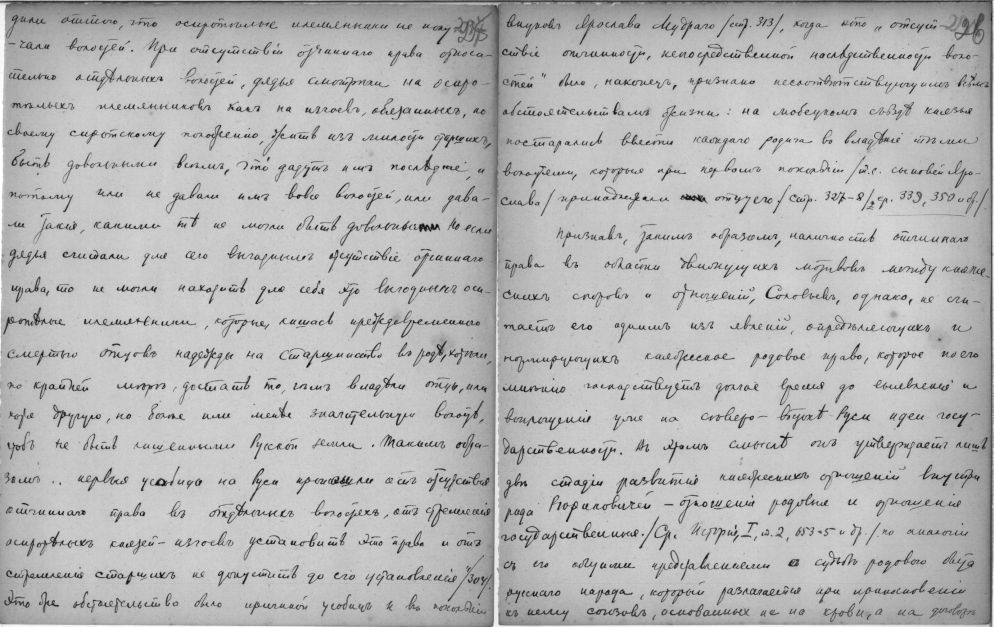 дили оттого, что осиротѣлые племянники не полу-
-чали волостей. При отсутствіи отчиннаго права относи-
тельно отдѣльныхъ волостей, дядья смотрѣли на осиро-
тѣлыхъ племянниковъ какъ на изгоевъ, обязанныхъ, по
своему сиротскому положенію, жить изъ милости старшихъ,
быть довольными всѣмъ, что дадутъ имъ послѣдніе, и
потому или не давали имъ вовсе волостей, или дава-
ли такія, какими тѣ не могли быть довольны. Но если
дядья считали для себя выгоднымъ отсутствіе отчиннаго
права, то не могли находить для себя это выгоднымъ оси-
ротѣлые племянники, которые, лишась преждевременною
смертью отцовъ надежды на старшинство въ родѣ, хотѣли,
по крайней мѣрѣ, достать то, чѣмъ владѣли отцы, или
хотя другую, но болѣе или менѣе значительную волость,
чтобъ не быть лишенными Русской земли. Такимъ обра-
зомъ.. первыя усобицы на Руси произошли отъ отсутствія
отчиннаго права въ отдѣльныхъ волостяхъ, отъ стремленія
осиротѣлыхъ князей-изгоевъ установить это право и отъ
стремленія старшихъ не допустить до его установленія" /304/.
Это же обстоятельство было причиной усобицъ и въ поколѣніи
296
внуковъ Ярослава Мудраго /стр. 313/, когда это „отсут-
ствіе отчинности, непосредственной наслѣдственности воло-
стей" было, наконецъ, признано несоотвѣтствующимъ всѣмъ
обстоятельствамъ жизни: на любецкомъ съѣздѣ князья
постарались ввести каждаго родича во владѣніе тѣми
волостями, которыя при первомъ поколѣніи /т.е. сыновей Яро-
слава/ принадлежали отцу его /стр. 327-8/ ср. 339, 350 и др./.
Признавъ, такимъ образомъ, наличность отчиннаго
права въ области движущихъ мотивовъ между княже-
скихъ споровъ и отношеній, Соловьевъ, однако, не счи-
таетъ его однимъ изъ явленій, опредѣляющихъ и
нормирующихъ княжеское родовое право, которое по его
мнѣнію господствуетъ долгое время до выявленія и
воплощенія уже на сѣверо-востокѣ Руси идеи госу-
дарственности. Въ этомъ смыслѣ онъ утверждаетъ лишь
двѣ стадіи развитія княжескихъ отношеній внутри
рода Рюриковичей – отношенія родовыя и отношенія
государственныя. /Ср. Исторія, I, т. 2, 653-5 и др./ по аналогіи
съ его общими представленіями о судьбѣ родового быта
русскаго народа, который разлагается при прикосновеніи
къ нему союзовъ, основанныхъ не на крови, а на договорѣ